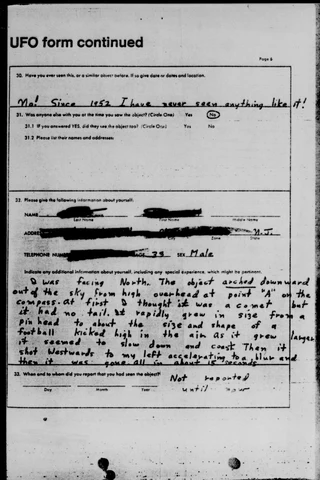 UFO form continued
Page 6
20. Have you ever seen this, or a similar object before. If so give date or dates and location.
No! Since 1952 I have never seen anything like it!
21. Was anyone else with you at the time you saw the object? (Circle One) Yes No
21.1 If you answered YES, did they see the object too? (Circle One) Yes No
21.2 Please list their names and addresses:
22. Please give the following information about yourself.
NAME
Last Name First Name Middle Name
ADDRESS N.J.
City Zone State
TELEPHONE NUMBER AGE 35 SEX Male
Indicate any additional information about yourself, including any special experience, which might be pertinent.
I was facing North. The object arched downward
out of the sky from high overhead at point "A" on the
compass. at first I thought it was a comet but
it had no tail. It rapidly grew in size from a
pin head to about the size and shape of a
football kicked high in the air. As it grew larger
it seemed to slow down and coast. Then it
shot Westwards to my left accelerating to a blur and
then it was gone all in about 15 seconds
23. When and to whom did you report that you had seen the object? Not reported
until now
Day Month Year